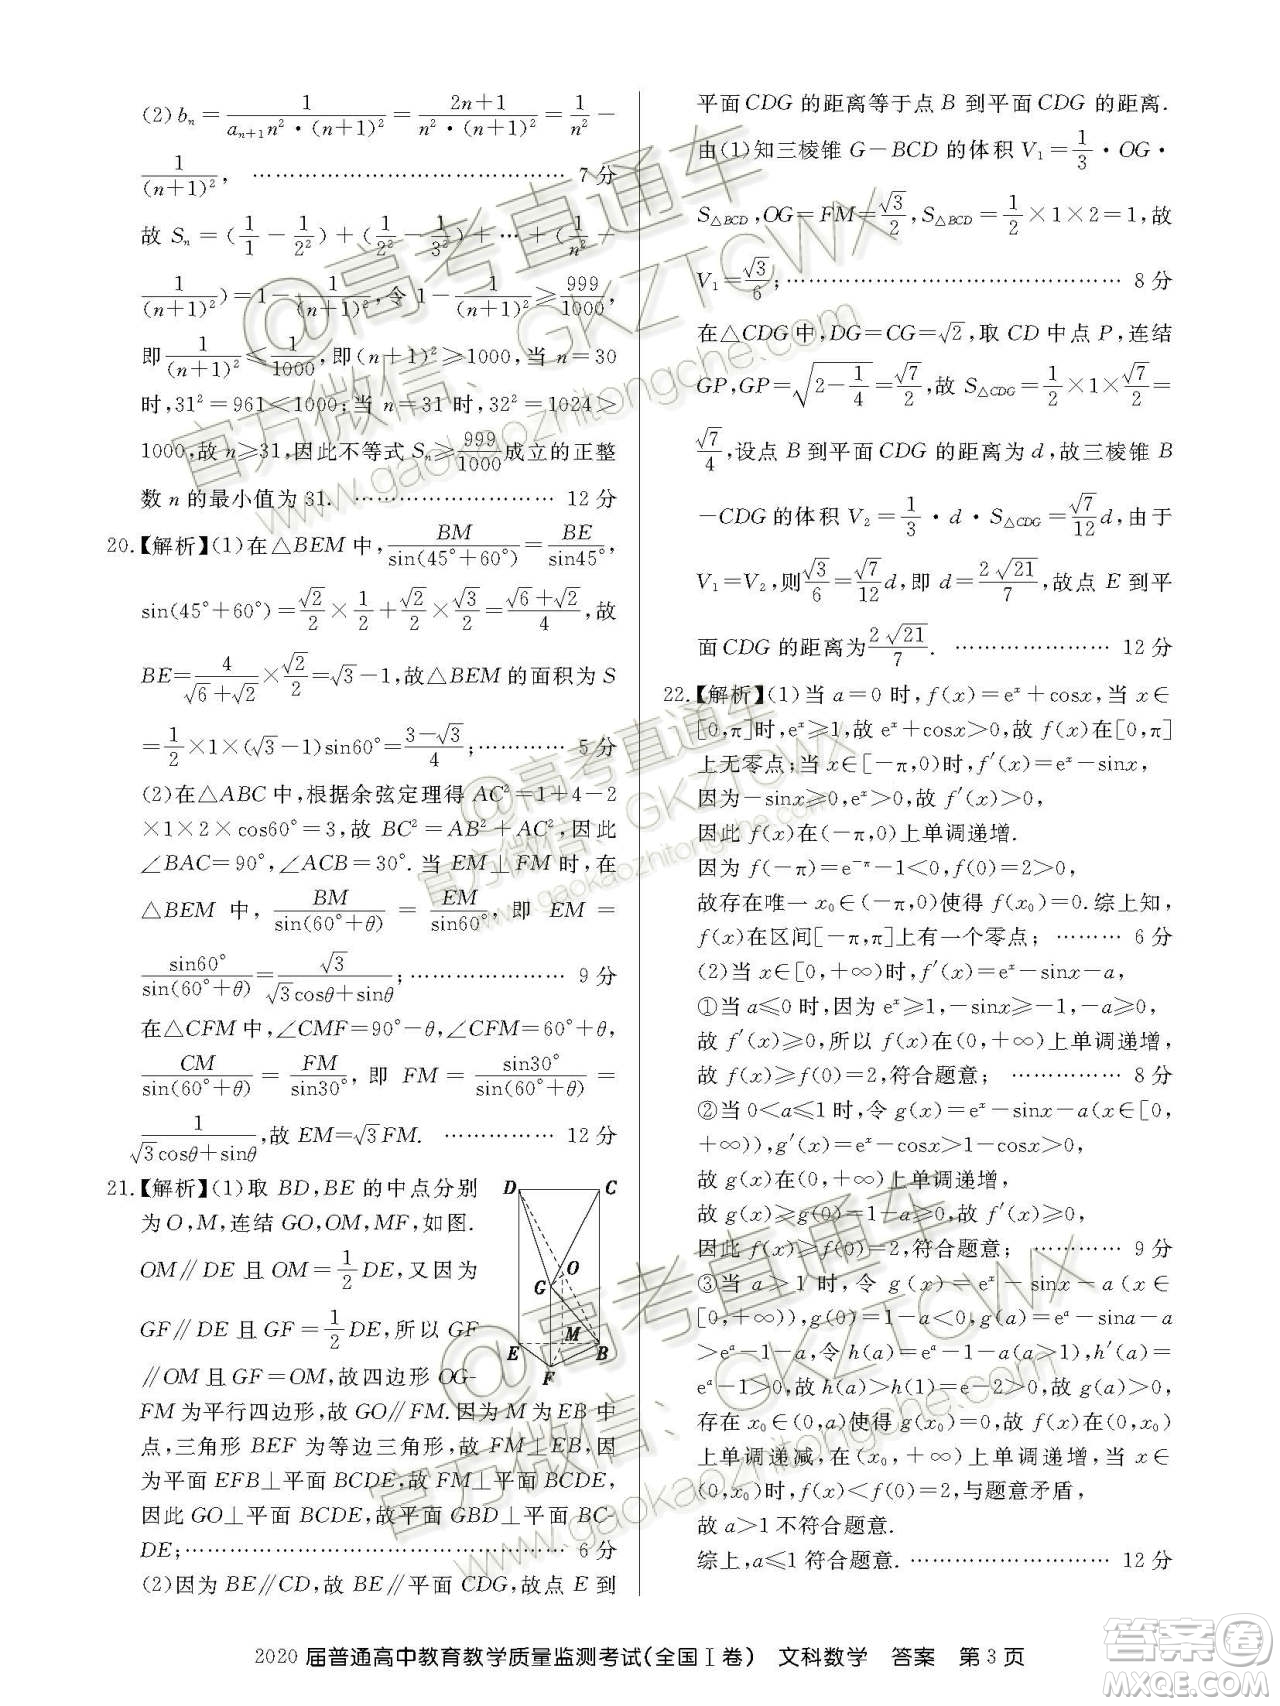 (2) bₙ = 1/(aₙ₊₁n²·(n+1)²) = (2n+1)/(n²·(n+1)²) = 1/n² −
1/(n+1)², …………………………………… 7 分
故 Sₙ = (1/1 − 1/2²) + (1/2² − 1/3²) + … + (1/n² −
1/(n+1)²) = 1 − 1/(n+1)², 令 1 − 1/(n+1)² ≥ 999/1000,
即 1/(n+1)² ≤ 1/1000, 即(n+1)² ≥ 1000, 当 n=30
时, 31²=961<1000; 当 n=31 时, 32²=1024>
1000, 故 n≥31, 因此不等式 Sₙ ≥ 999/1000 成立的正整
数 n 的最小值为 31. ……………………… 12 分
20.【解析】(1)在△BEM 中, BM/sin(45°+60°) = BE/sin45°,
sin(45°+60°) = √2/2 × 1/2 + √2/2 × √3/2 = (√6+√2)/4, 故
BE = 4/(√6+√2) × √2/2 = √3−1, 故△BEM 的面积为 S
= 1/2 ×1×(√3−1)sin60° = (3−√3)/4; ………… 5 分
(2)在△ABC 中, 根据余弦定理得 AC²=1+4−2
×1×2×cos60°=3, 故 BC²=AB²+AC², 因此
∠BAC=90°, ∠ACB=30°. 当 EM⊥FM 时, 在
△BEM 中, BM/sin(60°+θ) = EM/sin60°, 即 EM =
sin60°/sin(60°+θ) = √3/(√3cosθ+sinθ); ……………… 9 分
在△CFM 中, ∠CMF=90°−θ, ∠CFM=60°+θ,
CM/sin(60°+θ) = FM/sin30°, 即 FM = sin30°/sin(60°+θ) =
1/(√3cosθ+sinθ), 故 EM=√3FM. …………… 12 分
21.【解析】(1)取 BD, BE 的中点分别
为 O, M, 连结 GO, OM, MF, 如图.
OM∥DE 且 OM = 1/2 DE, 又因为
GF∥DE 且 GF = 1/2 DE, 所以 GF
∥OM 且 GF=OM, 故四边形 OG-
FM 为平行四边形, 故 GO∥FM. 因为 M 为 EB 中
点, 三角形 BEF 为等边三角形, 故 FM⊥EB, 因
为平面 EFB⊥平面 BCDE, 故 FM⊥平面 BCDE,
因此 GO⊥平面 BCDE, 故平面 GBD⊥平面 BC-
DE; ……………………………………… 6 分
(2)因为 BE∥CD, 故 BE∥平面 CDG, 故点 E 到
D C
O
G
M
E B
F
平面 CDG 的距离等于点 B 到平面 CDG 的距离.
由(1)知三棱锥 G−BCD 的体积 V₁ = 1/3 · OG ·
S△BCD, OG=FM= √3/2, S△BCD = 1/2 ×1×2=1, 故
V₁ = √3/6; …………………………………… 8 分
在△CDG 中, DG=CG=√2, 取 CD 中点 P, 连结
GP, GP = √(2−1/4) = √7/2, 故 S△CDG = 1/2 ×1× √7/2 =
√7/4, 设点 B 到平面 CDG 的距离为 d, 故三棱锥 B
−CDG 的体积 V₂ = 1/3 · d · S△CDG = √7/12 d, 由于
V₁=V₂, 则 √3/6 = √7/12 d, 即 d = 2√21/7, 故点 E 到平
面 CDG 的距离为 2√21/7. ………………… 12 分
22.【解析】(1)当 a=0 时, f(x)=eˣ+cosx, 当 x∈
[0,π]时, eˣ≥1, 故 eˣ+cosx>0, 故 f(x)在[0,π]
上无零点; 当 x∈[−π,0)时, f′(x)=eˣ−sinx,
因为−sinx≥0, eˣ>0, 故 f′(x)>0,
因此 f(x)在(−π,0)上单调递增.
因为 f(−π)=e^(−π)−1<0, f(0)=2>0,
故存在唯一 x₀∈(−π,0)使得 f(x₀)=0. 综上知,
f(x)在区间[−π,π]上有一个零点; ……… 6 分
(2)当 x∈[0,+∞)时, f′(x)=eˣ−sinx−a,
①当 a≤0 时, 因为 eˣ≥1, −sinx≥−1, −a≥0,
故 f′(x)≥0, 所以 f(x)在(0,+∞)上单调递增,
故 f(x)≥f(0)=2, 符合题意; …………… 8 分
②当 0<a≤1 时, 令 g(x)=eˣ−sinx−a(x∈[0,
+∞)), g′(x)=eˣ−cosx>1−cosx>0,
故 g(x)在(0,+∞)上单调递增,
故 g(x)≥g(0)=1−a≥0, 故 f′(x)≥0,
因此 f(x)≥f(0)=2, 符合题意; ………… 9 分
③当 a>1 时, 令 g(x)=eˣ−sinx−a(x∈
[0,+∞)), g(0)=1−a<0, g(a)=eᵃ−sina−a
>eᵃ−1−a, 令 h(a)=eᵃ−1−a(a>1), h′(a)=
eᵃ−1>0, 故 h(a)>h(1)=e−2>0, 故 g(a)>0,
存在 x₀∈(0,a)使得 g(x₀)=0, 故 f(x)在(0,x₀)
上单调递减, 在(x₀,+∞)上单调递增, 当 x∈
(0,x₀)时, f(x)<f(0)=2, 与题意矛盾,
故 a>1 不符合题意.
综上, a≤1 符合题意. ……………………… 12 分
2020 届普通高中教育教学质量监测考试(全国Ⅰ卷) 文科数学 答案 第 3 页
@高考直通车
官方微信: GKZTCWX
www.gaokaozhitongche.com
@高考直通车
官方微信: GKZTCWX
www.gaokaozhitongche.com
@高考直通车
官方微信: GKZTCWX
www.gaokaozhitongche.com
答案圈
MXQE.COM